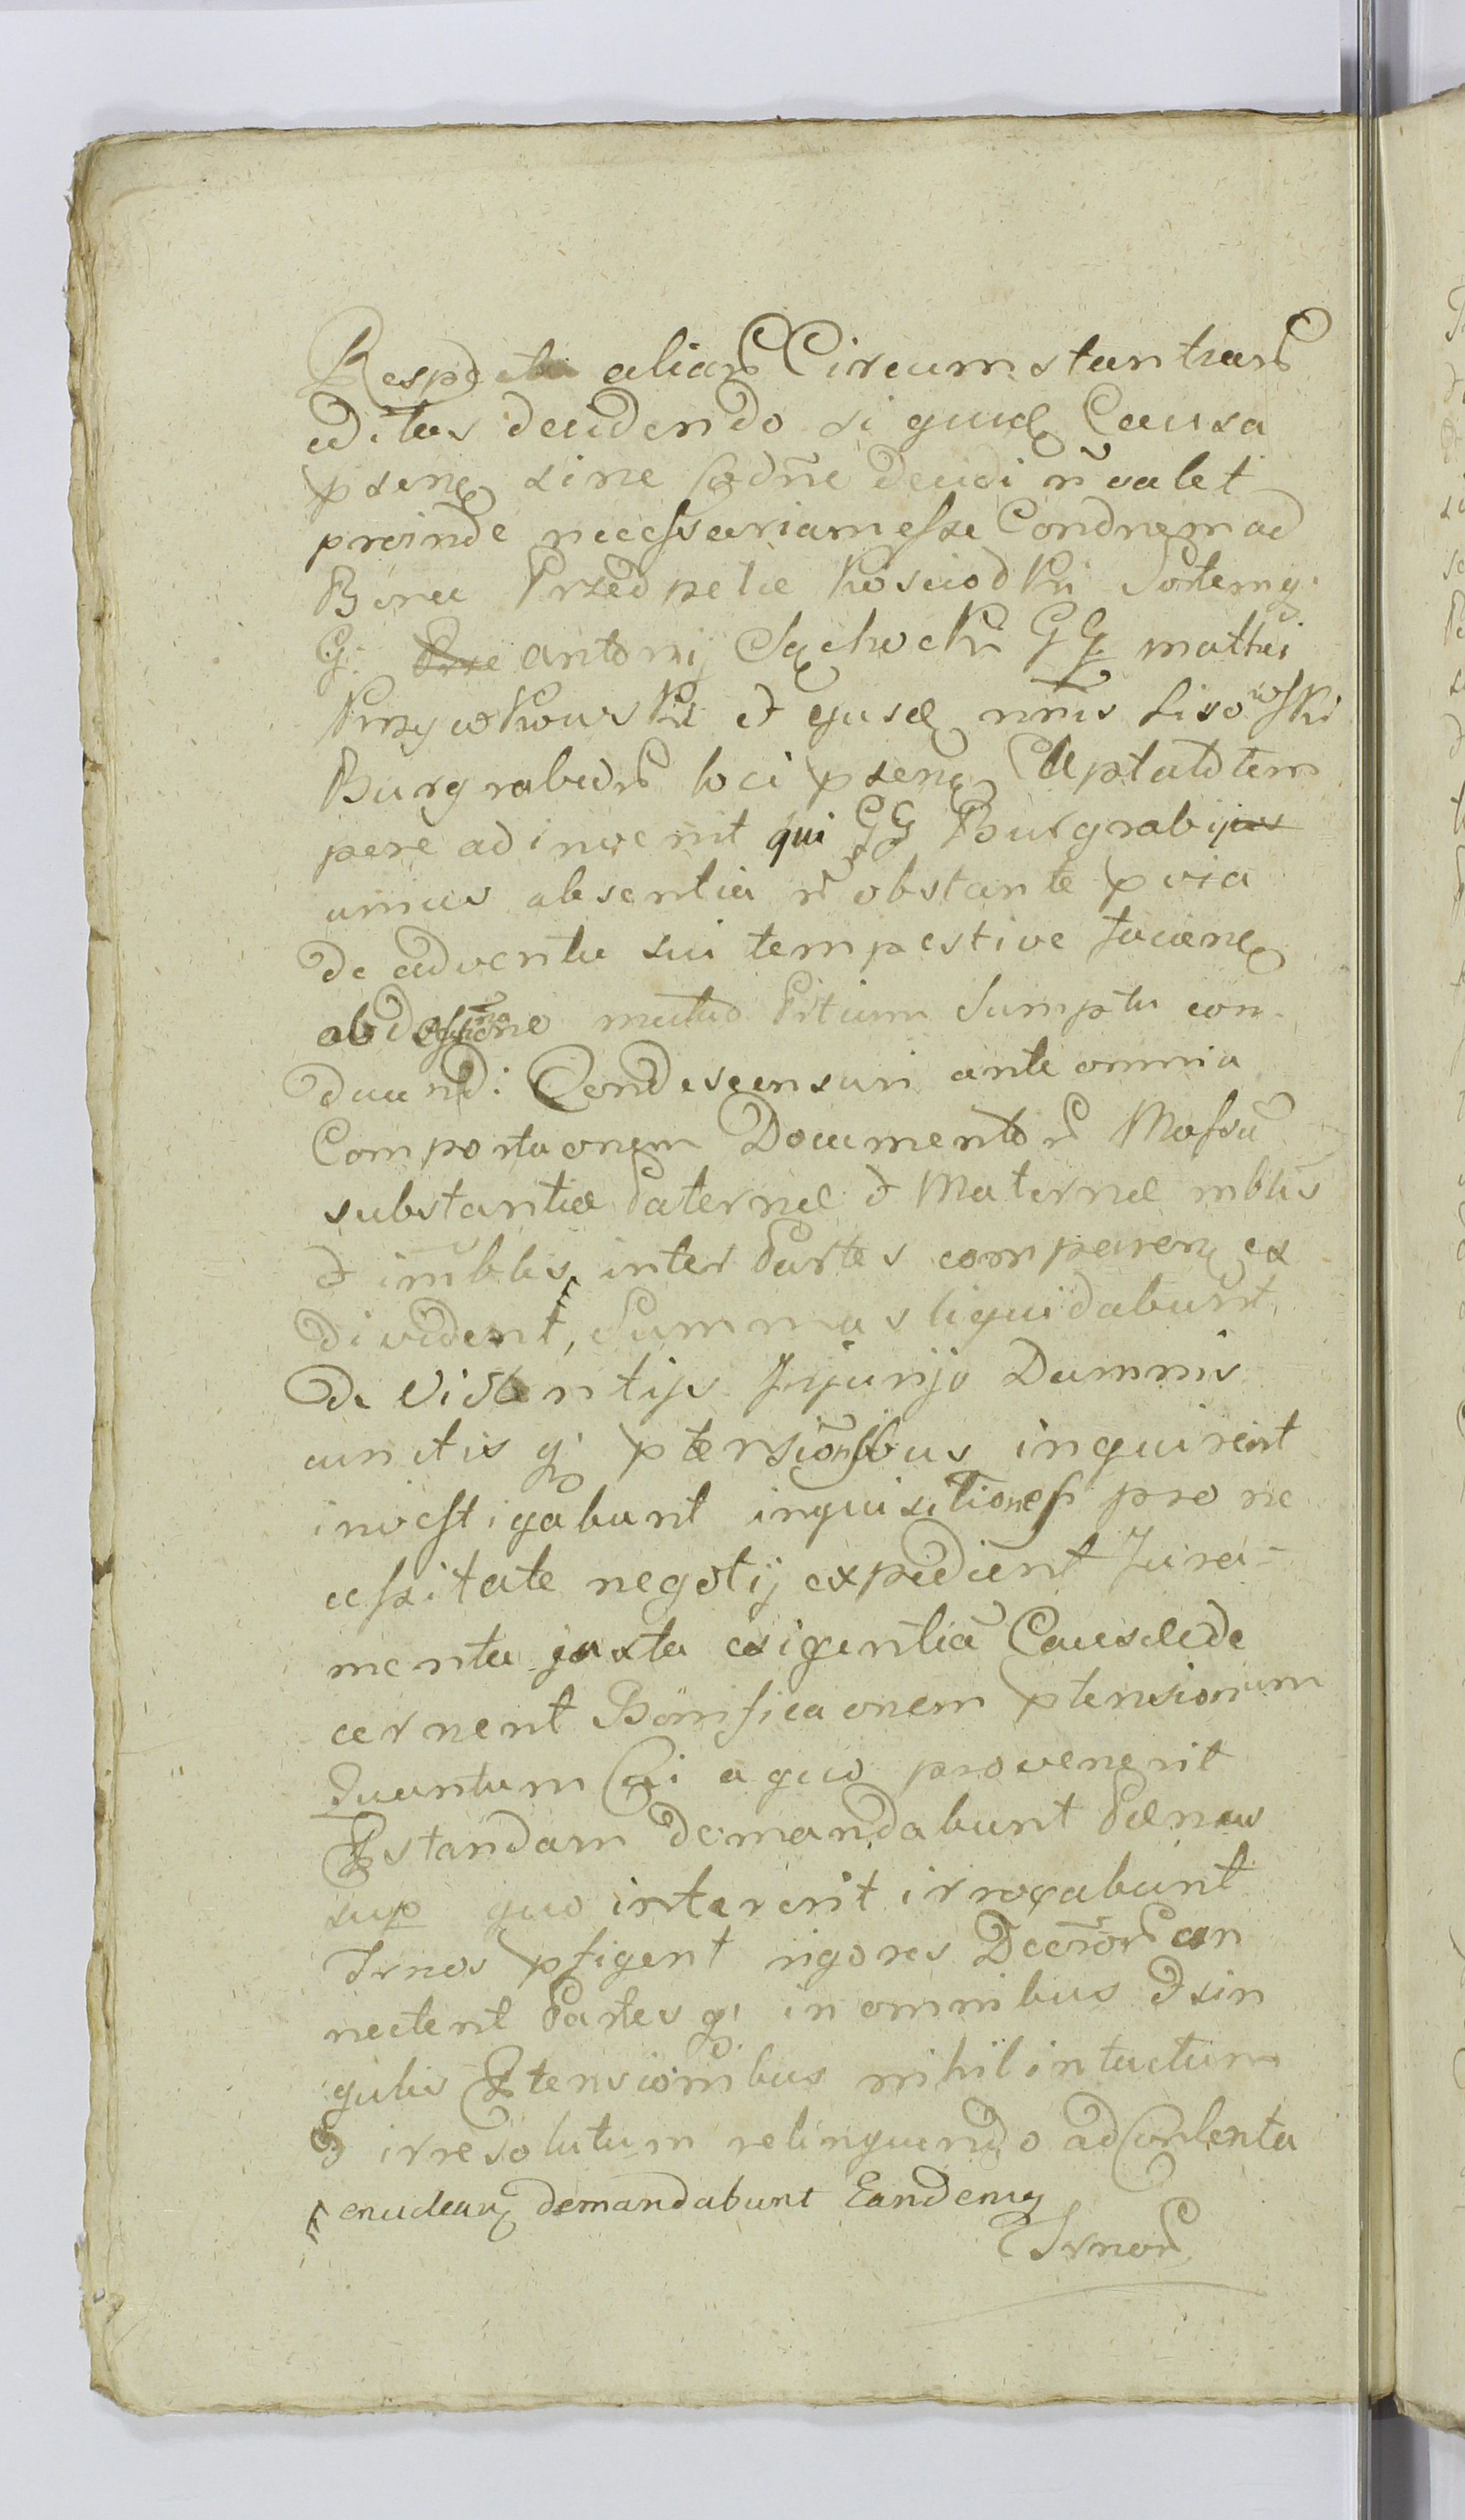 Respectu aliar Circumstantiar
aditus decidendo si quid Causa
psenq sine Condne decidi ñ valet
proinde necessariam esse Condnem ad
Bona Przedpełce Kosciodki Sortemq
G. Antonij Sęchocki GG Mathei
Krzyczkowski et ejusd nnis Lisowski
Burgrabior loci psenq Aptatotem
pere adinvenit qui GG Burgrabij
unius absentia ñ obstante pvia
de adventu sui tempestive faciene
ab mutuo Ptium Sumptu con-
ducendi Condescensuri ante omnia
Comportaonem Documentor Massã
substantiæ Paternæ et Maternæ mblis
et imblis inter Partes comparen ex
divident, Summas liquidabunt,
de Violentijs Injurijs Damnis
cunctis q ptensionibus inquirent
investigabunt inquisitiones pro ne
cessitate negotij expedient Jura-
menta juxta exigentiã Causæ de
cernent Bonificaonem ptensionum
Quantum Cui a quo provenerit
Pstandam demandabunt Pænas
sup quo intererit irrogabunt
Trnos pfigent rigores Decretor an
nectent Partes q in omnibus et sin
gulis Ptensionibus nihil intactum
et irresolutum relinquendo ad Contenta
enucleanq demandabunt Eandemq
Trnor